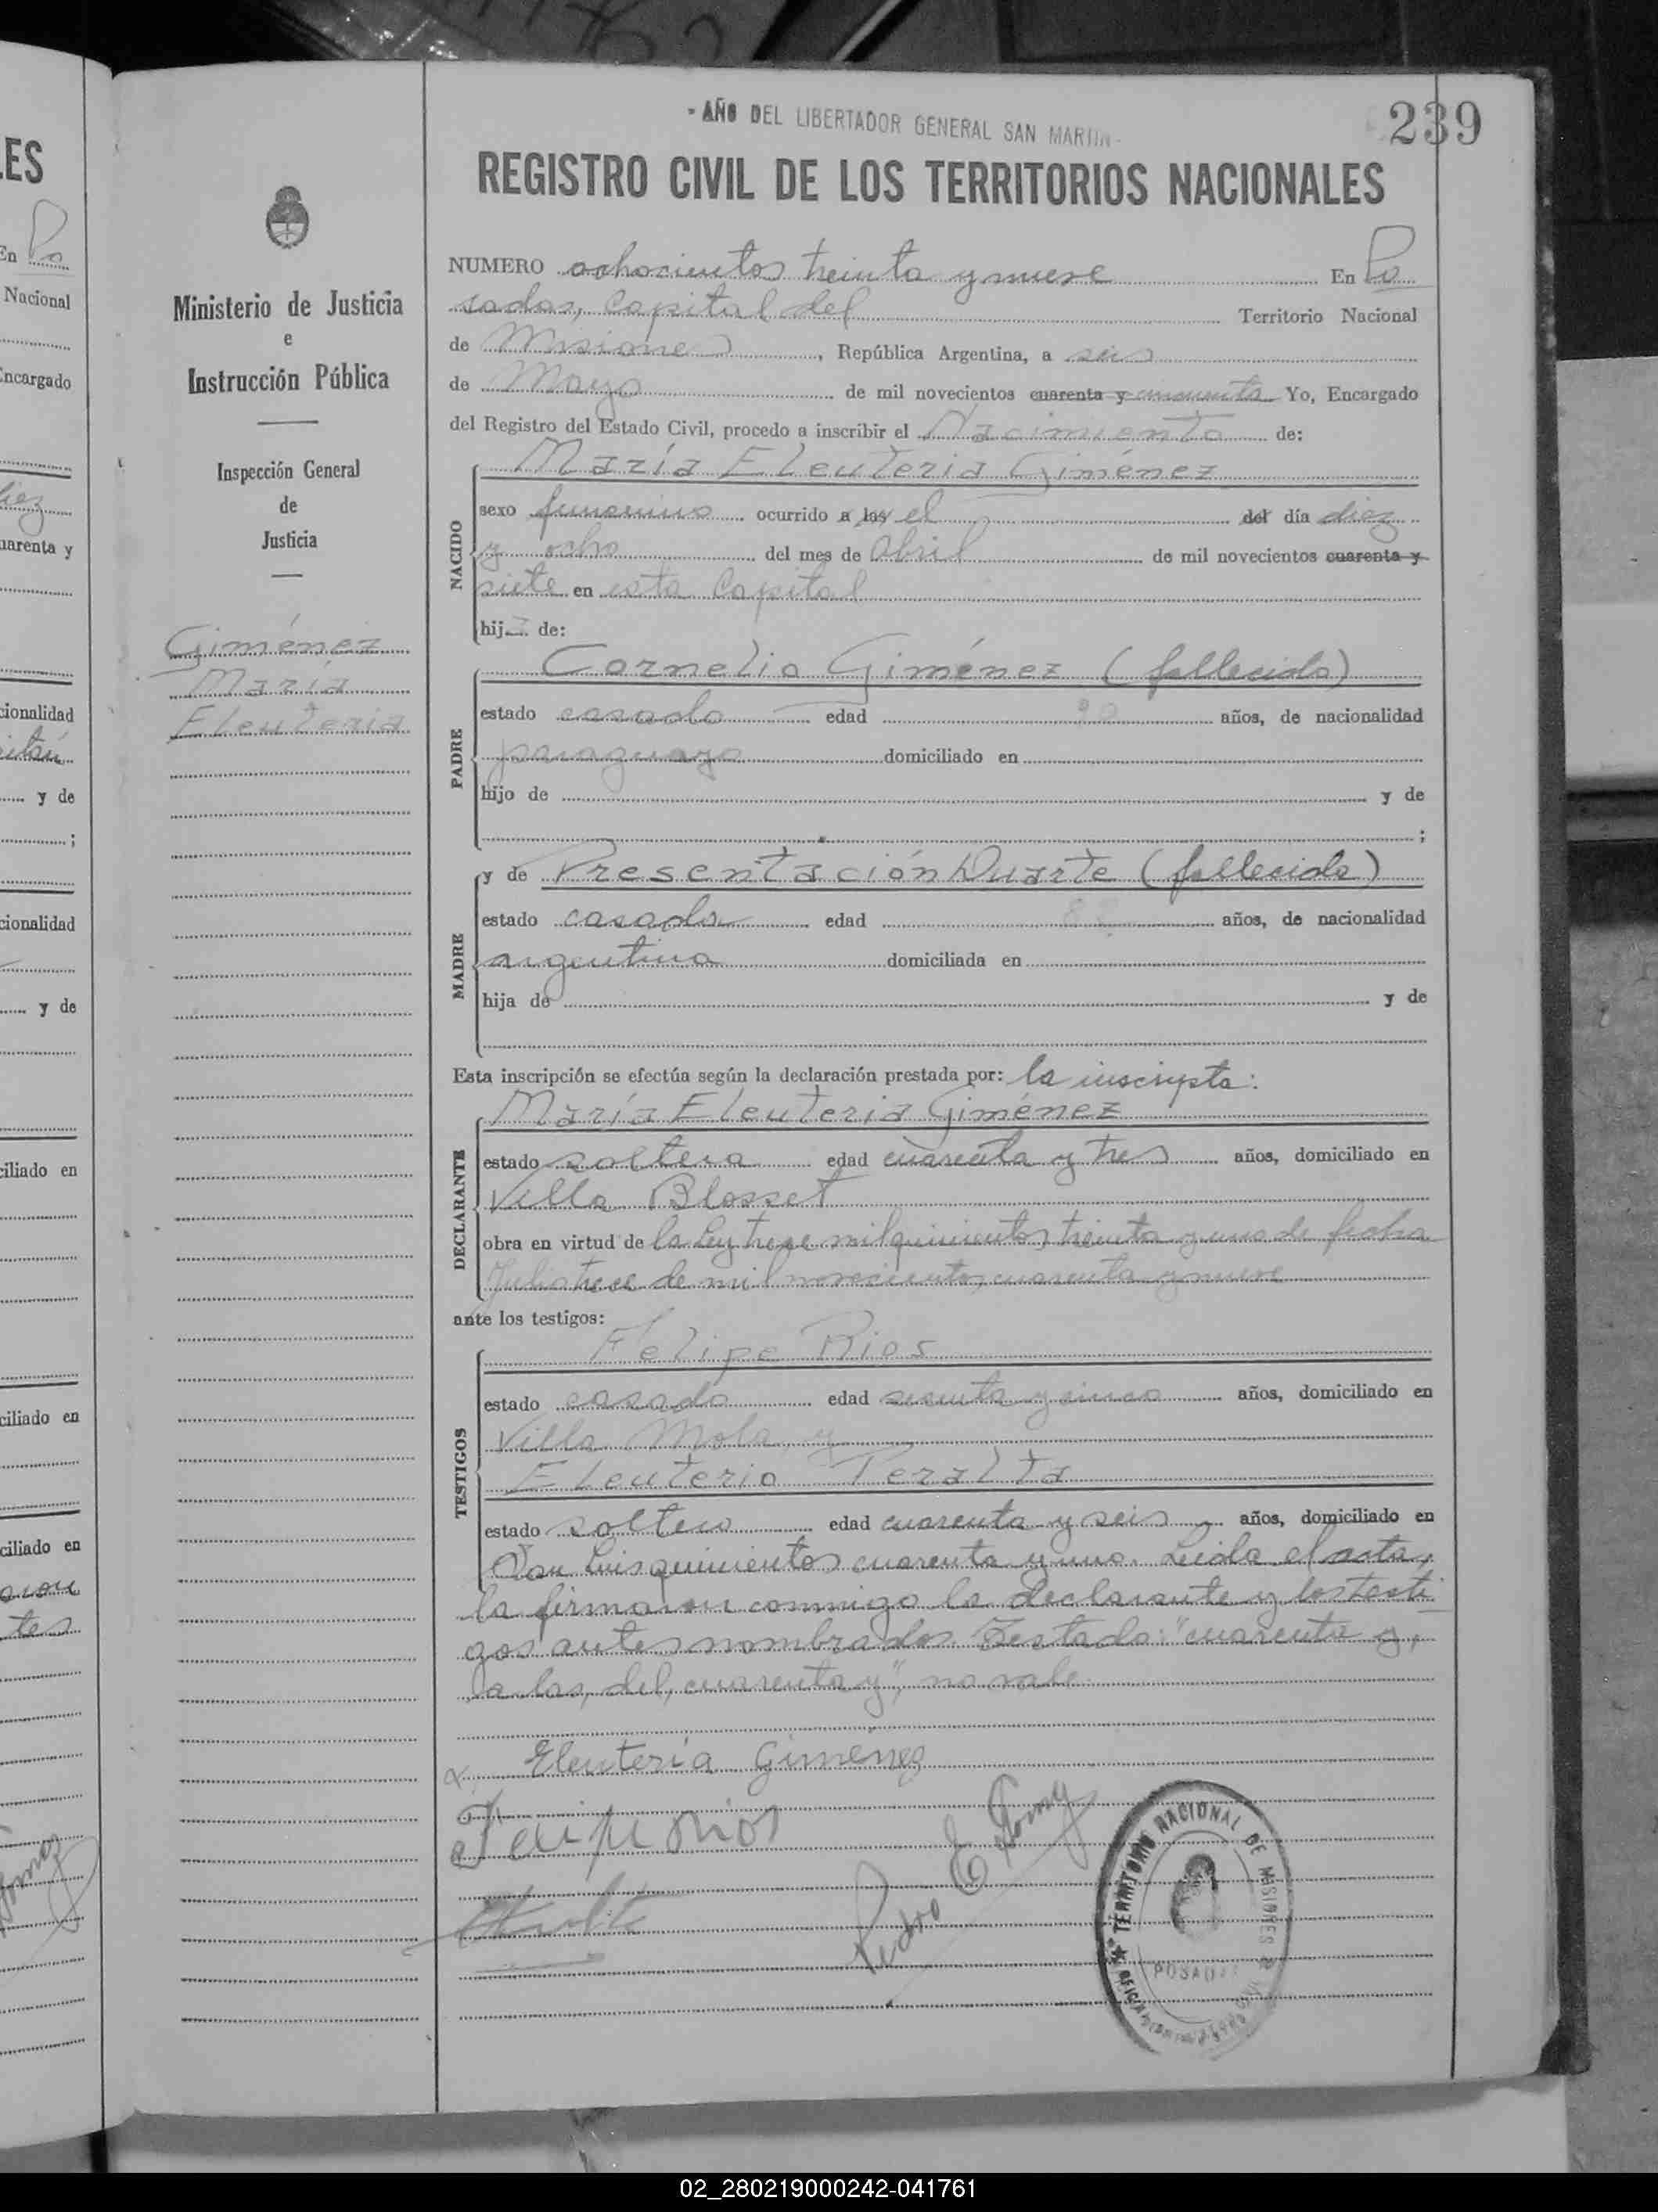 - AÑO DEL LIBERTADOR GENERAL SAN MARTIN -
239
REGISTRO CIVIL DE LOS TERRITORIOS NACIONALES
Ministerio de Justicia
e
Instrucción Pública
Inspección General
de
Justicia
Giménez
María
Eleuteria
NUMERO ochocientos treinta y nueve En Po
sadas, Capital del Territorio Nacional
de Misiones, República Argentina, a seis
de Mayo de mil novecientos cuarenta y cincuenta Yo, Encargado
del Registro del Estado Civil, procedo a inscribir el Nacimiento de:
María Eleuteria Giménez
NACIDO
sexo femenino ocurrido a las el del día diez
y ocho del mes de Abril de mil novecientos cuarenta y
siete en esta Capital
hija de:
PADRE
Cornelio Giménez (fallecido)
estado casado edad años, de nacionalidad
paraguayo domiciliado en
hijo de y de
;
MADRE
y de Presentación Duarte (fallecida)
estado casada edad años, de nacionalidad
argentina domiciliada en
hija de y de
Esta inscripción se efectúa según la declaración prestada por: la inscripta:
DECLARANTE
María Eleuteria Giménez
estado soltera edad cuarenta y tres años, domiciliado en
Villa Blosset
obra en virtud de la Ley trece mil quinientos treinta y uno de fecha
Julio trece de mil novecientos cuarenta y nueve
ante los testigos:
TESTIGOS
Felipe Rios
estado casado edad sesenta y cinco años, domiciliado en
Villa Mola, y
Eleuterio Peralta
estado soltero edad cuarenta y seis años, domiciliado en
San Luis quinientos cuarenta y uno. Leida el acta,
la firmaron conmigo la declarante y los testi
gos antes nombrados. Testado: "cuarenta y,
a las, del, cuarenta y", no vale
Eleuteria Giménez
Felipe Rios
Pedro E.
TERRITORIO NACIONAL DE MISIONES
POSADAS
02_280219000242-041761